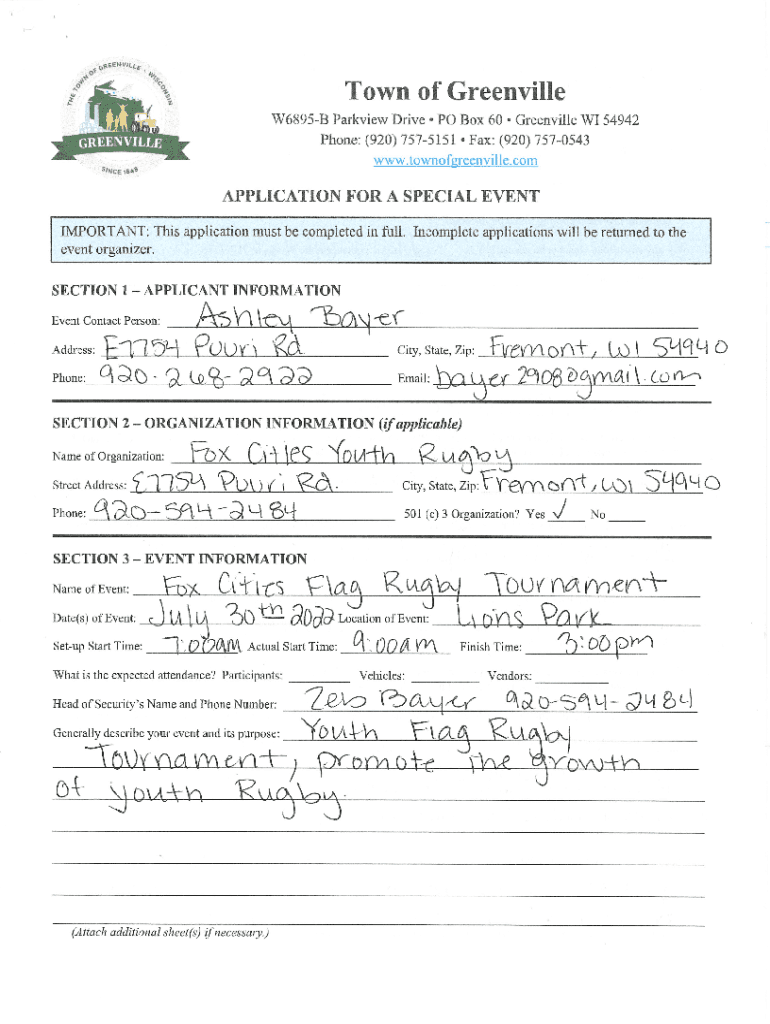 THE TOWN OF GREENVILLE • WISCONSIN
GREENVILLE
SINCE 1849
Town of Greenville
W6895-B Parkview Drive • PO Box 60 • Greenville WI 54942
Phone: (920) 757-5151 • Fax: (920) 757-0543
www.townofgreenville.com
APPLICATION FOR A SPECIAL EVENT
IMPORTANT: This application must be completed in full. Incomplete applications will be returned to the
event organizer.
SECTION 1 – APPLICANT INFORMATION
Event Contact Person: Ashley Bayer
Address: E7754 Puuri Rd City, State, Zip: Fremont, WI 54940
Phone: 920-268-2922 Email: bayer2908@gmail.com
SECTION 2 – ORGANIZATION INFORMATION (if applicable)
Name of Organization: Fox Cities Youth Rugby
Street Address: E7754 Puuri Rd. City, State, Zip: Fremont, WI 54940
Phone: 920-594-2484 501 (c) 3 Organization? Yes √ No
SECTION 3 – EVENT INFORMATION
Name of Event: Fox Cities Flag Rugby Tournament
Date(s) of Event: July 30th 2022 Location of Event: Lions Park
Set-up Start Time: 7:00am Actual Start Time: 9:00am Finish Time: 3:00pm
What is the expected attendance? Participants: Vehicles: Vendors:
Head of Security's Name and Phone Number: Zeb Bayer 920-594-2484
Generally describe your event and its purpose: Youth Flag Rugby
Tournament, promote the growth
of youth Rugby.
(Attach additional sheet(s) if necessary.)